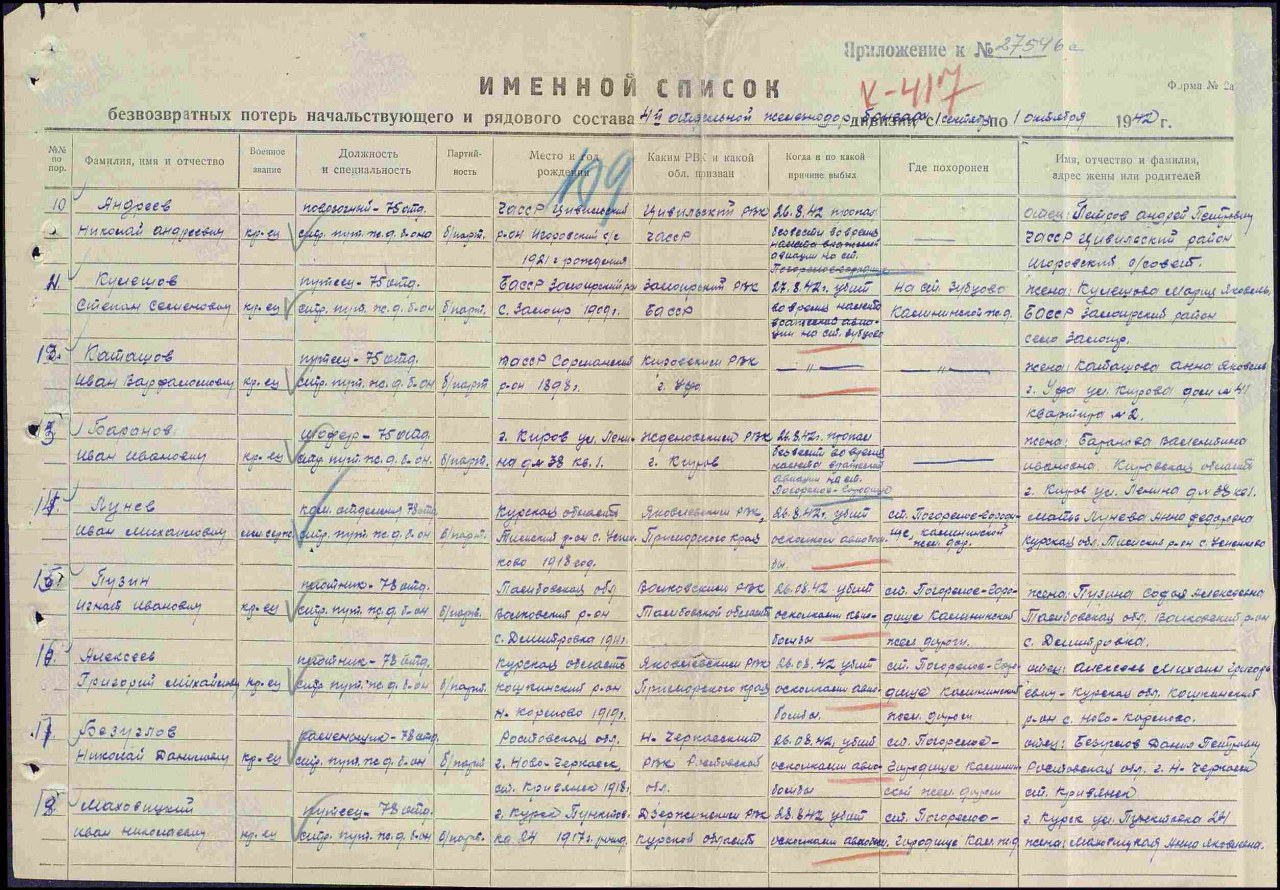 Приложение к № 27546с
ИМЕННОЙ СПИСОК
К-417
Форма № 2а
безвозвратных потерь начальствующего и рядового состава 4й отдельной железнодор. бригады дивизии с 1 сентября по 1 октября 1942 г.
№№ по пор.
Фамилия, имя и отчество
Военное звание
Должность и специальность
Партий-ность
Место и год рождения
Каким РВК и какой обл. призван
Когда и по какой причине выбыл
Где похоронен
Имя, отчество и фамилия, адрес жены или родителей
109
10 Андреев ЧАССР Цивильский Цивильский РВК 26.8.42 пропал отец: Петров Андрей Петрович
Николай Андреевич кр-ец стр. пут. ж.д. б-она б/парт. р-он Игоровский с/с ЧАССР безвести во время — ЧАССР Цивильский район
1921 г рождения налета вражеской авиации на ст. Игоровский с/совет.
Погорелое Городище
11 Кулешов путеец - 75 отд. БАССР 27.8.42г. убит На ст. Зубцово жена: Кулешова Мария Яковлев.
Степан Семенович кр-ец стр. пут. ж.д. б-он б/парт. 1909г. БАССР во время налета Калининской ж.д. БАССР район
вражеской авиации на ст. Зубцово село
12. Каташов путеец - 75 отд. БАССР Кировским РВК — " — — " — жена: Каташова Анна Яковлев.
Иван Варфоломеевич кр-ец стр. пут. ж.д. б-он б/парт. р-он 1898г. г. Уфа г. Уфа ул. Кирова дом № 41
квартира № 2.
13 Баранов шофер - 75 отд. г. Киров ул. Лени- РВК 26.8.42г. пропал жена: Баранова Василевина
Иван Иванович кр-ец стр. пут. ж.д. б-он б/парт. на д № 38 кв. 1. г. Киров безвести во время — Ивановна. Кировская область
налета вражеской авиации на ст. Погорелое-Городище г. Киров ул. Ленина д № 38 кв 1.
14. Лунев ком. отделения 78 отд. Курская область Яковлевским РВК, 26.8.42г. убит ст. Погорелое-Городи- мать Лунева Анна Федоровна
Иван Михайлович стр. пут. ж.д. б-он б/парт. р-он с. Приморского края осколком авиабом- ще, калининской жел. дор. Курская обл. р-он с.
ково 1918 год. бы.
15. Пузин плотник - 78 отд. Тамбовская обл. РВК 26.08.42 убит ст. Погорелое-Горо- жена: Пузина
Игнат Иванович кр-ец стр. пут. ж.д. б-он б/парт. р-он Тамбовской области осколками авиа- дище Калининской Тамбовская обл. р-он
с. Дмитровка 1911г. бомбы жел. дороги. с. Дмитровка.
16. Алексеев плотник - 78 отд. Курская область Яковлевским РВК 26.08.42 убит ст. Погорелое-Горо- отец: Алексеев Михаил Григорь-
Григорий Михайлович кр-ец стр. пут. ж.д. б-он б/парт. р-он Приморского края осколками авиа- дище Калининской евич - Курская обл.
1919г. бомбы. жел. дороги р-он с. Ново-
17. Безуглов каменщик - 78 отд. Ростовская обл. Н-Черкасским 26.08.42 убит ст. Погорелое- отец: Безуглов Данил Петрович
Николай Данилович кр-ец стр. пут. ж.д. б-он б/парт г. Ново-Черкаск РВК Ростовской осколками авиа- Городище Калинин- Ростовская обл. г. Н-Черкаск
ст. Кривянск 1918г. обл. бомбы ской жел. дороги ст. Кривянск
18. Маховицкий путеец - 78 отд. г. Курск Дзержинским РВК 28.8.42 убит ст. Погорелое- г. Курск ул. 24
Иван Николаевич кр-ец стр. пут. ж.д. б-он б/парт. 24 1917 г. рожд. Курской области осколками авиабом. Городище Кал. ж.д жена: Маховицкая Анна Яковлевна.